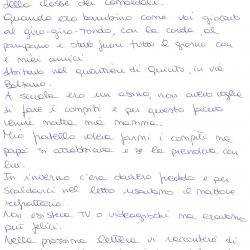 della classe dei coccodrilli.
Quando ero bambino come voi giocavo
al giro-giro-tondo, con la corda, al
pampano e stavo fuori tutto il giorno con
i miei amici.
Abitavo nel quartiere di Quinto, in via
Bolzano.
A scuola ero un asino, non avevo voglia
di fare i compiti e per questo facevo
venire matta mia mamma.
Mio fratello voleva farmi i compiti ma
papà si arrabbiava e se la prendeva con
lui.
In inverno c'era davvero freddo e per
scaldarci nel letto usavamo il mattone
refrattario.
Non esisteva TV o videogiochi ma eravamo
più felici.
Nella prossima lettera vi racconterò di